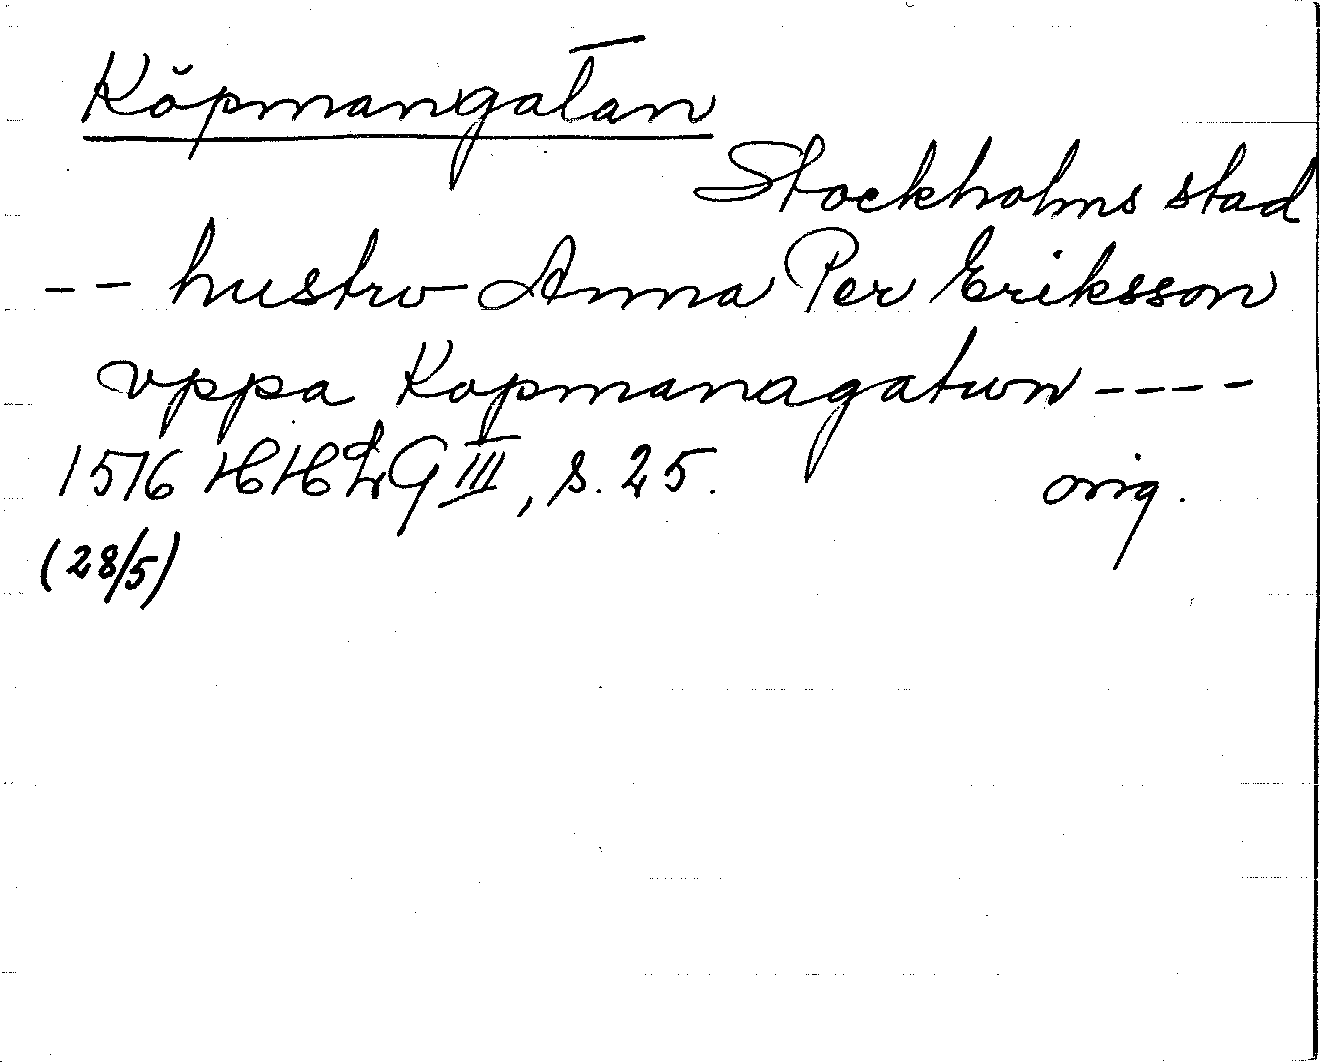 Köpmangatan
Stockholms stad
-- hustrv Anna Per Eriksson
vppa Kopmanagatwn ----
1576 HHLG III, s. 25. orig.
(28/5)